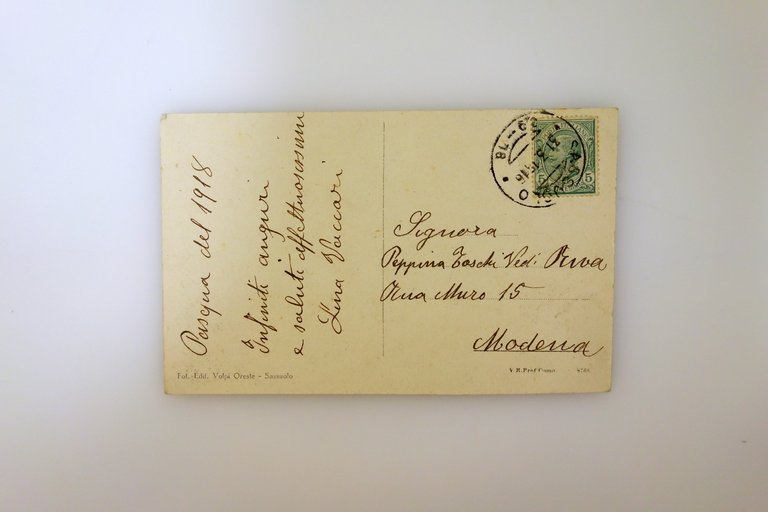 Pasqua del 1918
Infiniti auguri
e saluti affettuosissimi
Lina Vaccari
SASSUOLO
5 5
Signora
Peppina Toschi Ved. Riva
Rua Muro 15
Modena
Fot.-Edit. Volpi Oreste - Sassuolo